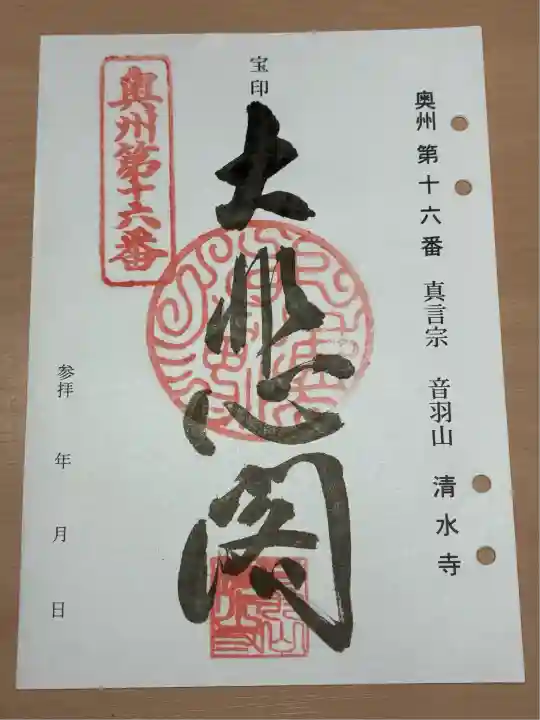 奥州 第十六番 真言宗 音羽山 清水寺
宝印
大悲心閣
奥州第十六番
参拝 年 月 日